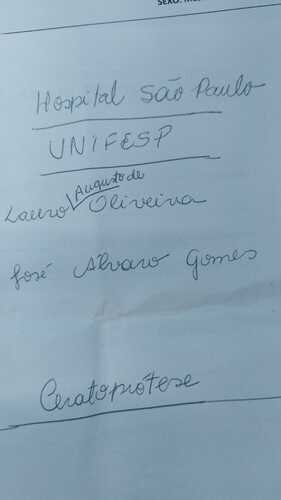 Hospital São Paulo
UNIFESP
Lauro Augusto de Oliveira
José Alvaro Gomes
Ceratoprótese